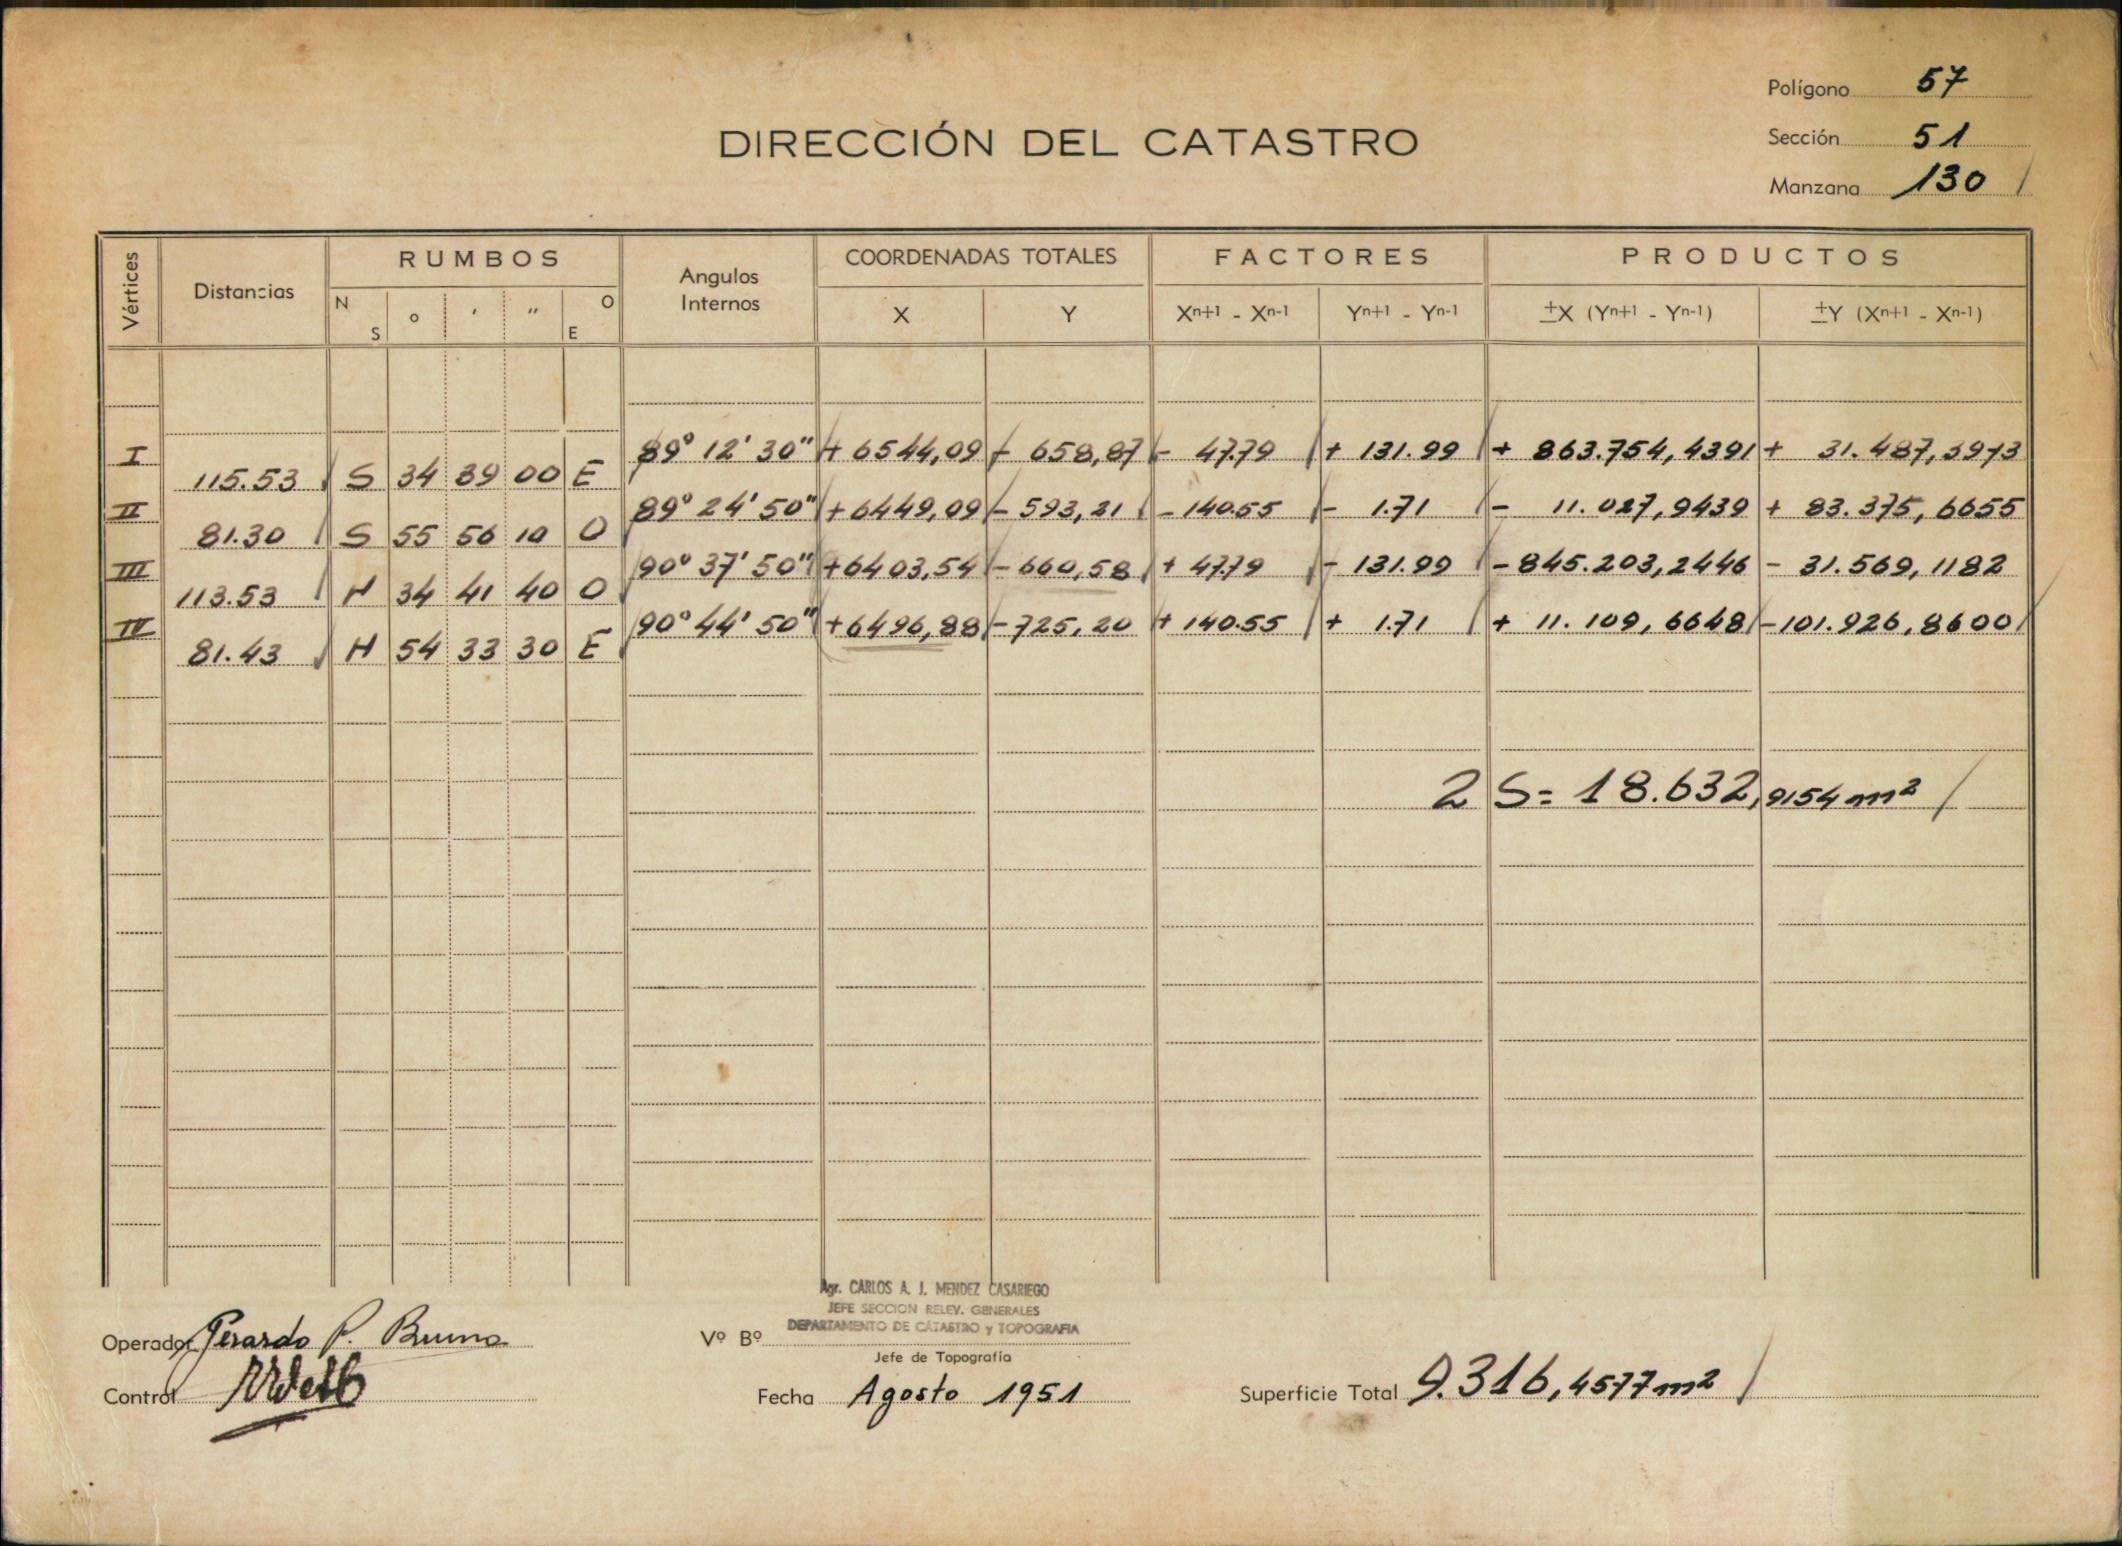 Polígono 57
DIRECCIÓN DEL CATASTRO
Sección 51
Manzana 130
Vértices Distancias RUMBOS Angulos Internos COORDENADAS TOTALES FACTORES PRODUCTOS
N S o ' " O E X Y Xn+1 - Xn-1 Yn+1 - Yn-1 ±X (Yn+1 - Yn-1) ±Y (Xn+1 - Xn-1)
I 89° 12' 30" + 6544,09 - 658,87 - 47.79 + 131.99 + 863.754,4391 + 31.487,3973
115.53 S 34 39 00 E
II 89° 24' 50" + 6449,09 - 593,21 - 140.55 - 1.71 - 11.027,9439 + 83.375,6655
81.30 S 55 56 10 O
III 90° 37' 50" + 6403,54 - 660,58 + 47.79 - 131.99 - 845.203,2446 - 31.569,1182
113.53 N 34 41 40 O
IV 90° 44' 50" + 6496,88 - 725,20 + 140.55 + 1.71 + 11.109,6648 - 101.926,8600
81.43 N 54 33 30 E
2 S = 18.632,9154 m²
Agr. CARLOS A. J. MENDEZ CASARIEGO
JEFE SECCION RELEV. GENERALES
DEPARTAMENTO DE CATASTRO y TOPOGRAFIA
Operador Gerardo P. Bruno
Vº Bº
Jefe de Topografía
Control
Fecha Agosto 1951
Superficie Total 9.316,4577 m²